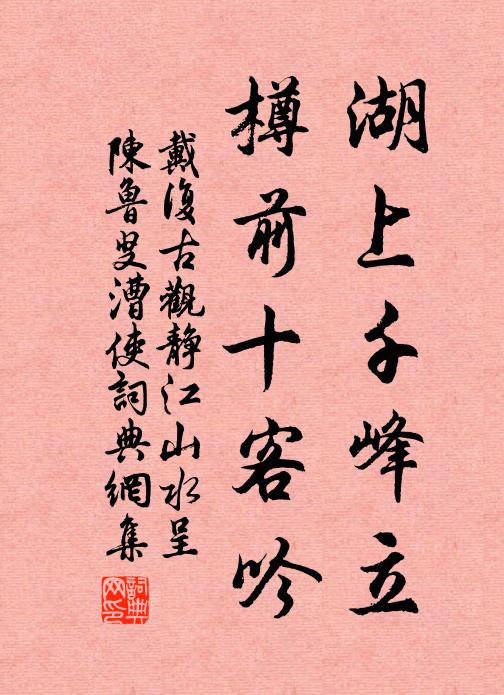 湖上千峰立
樽前十客吟
戴復古觀靜江山水呈
陳魯叟漕使詞典網集
詞典
网印